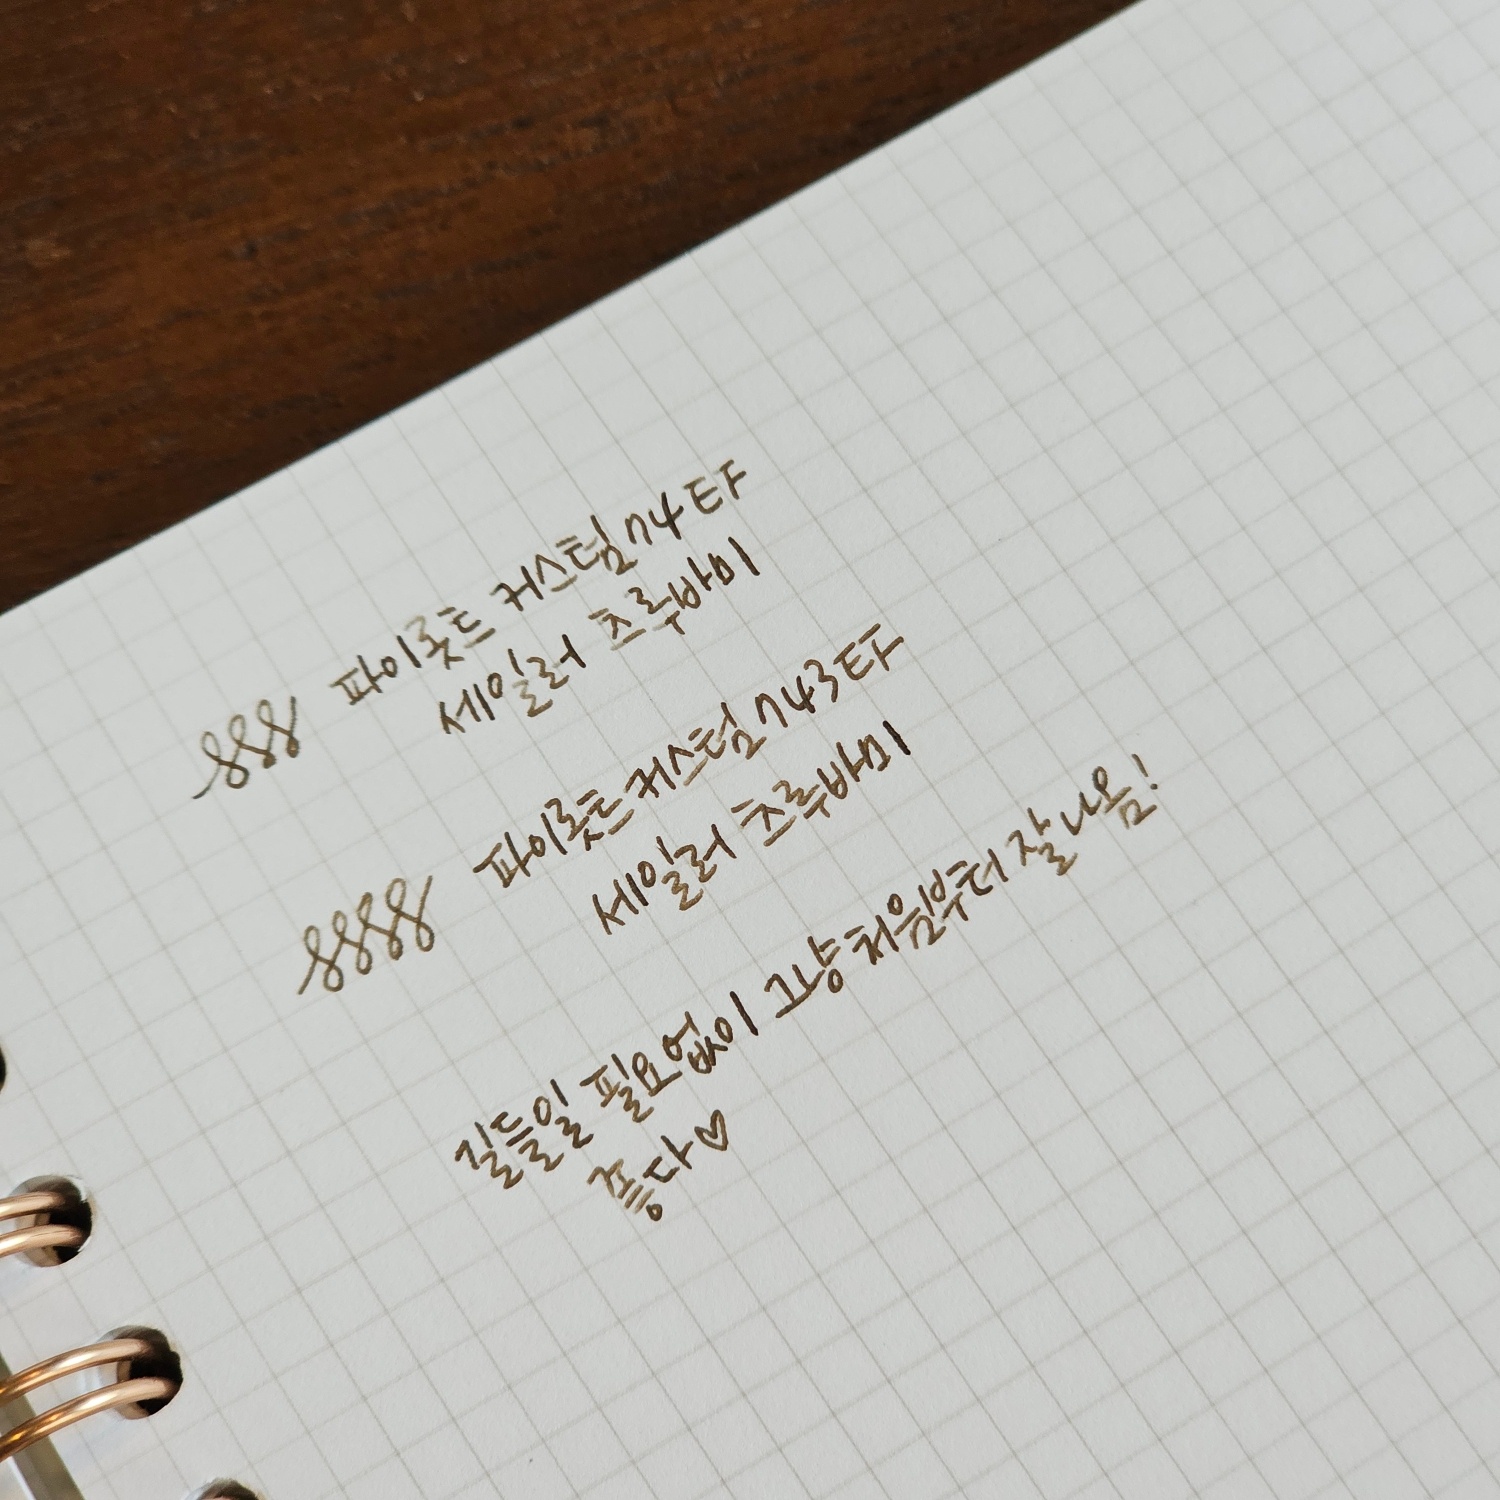 파이롯트 커스텀74 EF
세일러 츠루바미
파이롯트 커스텀743 EF
세일러 츠루바미
길들일 필요없이 그냥 처음부터 잘나옴!
좋다♡